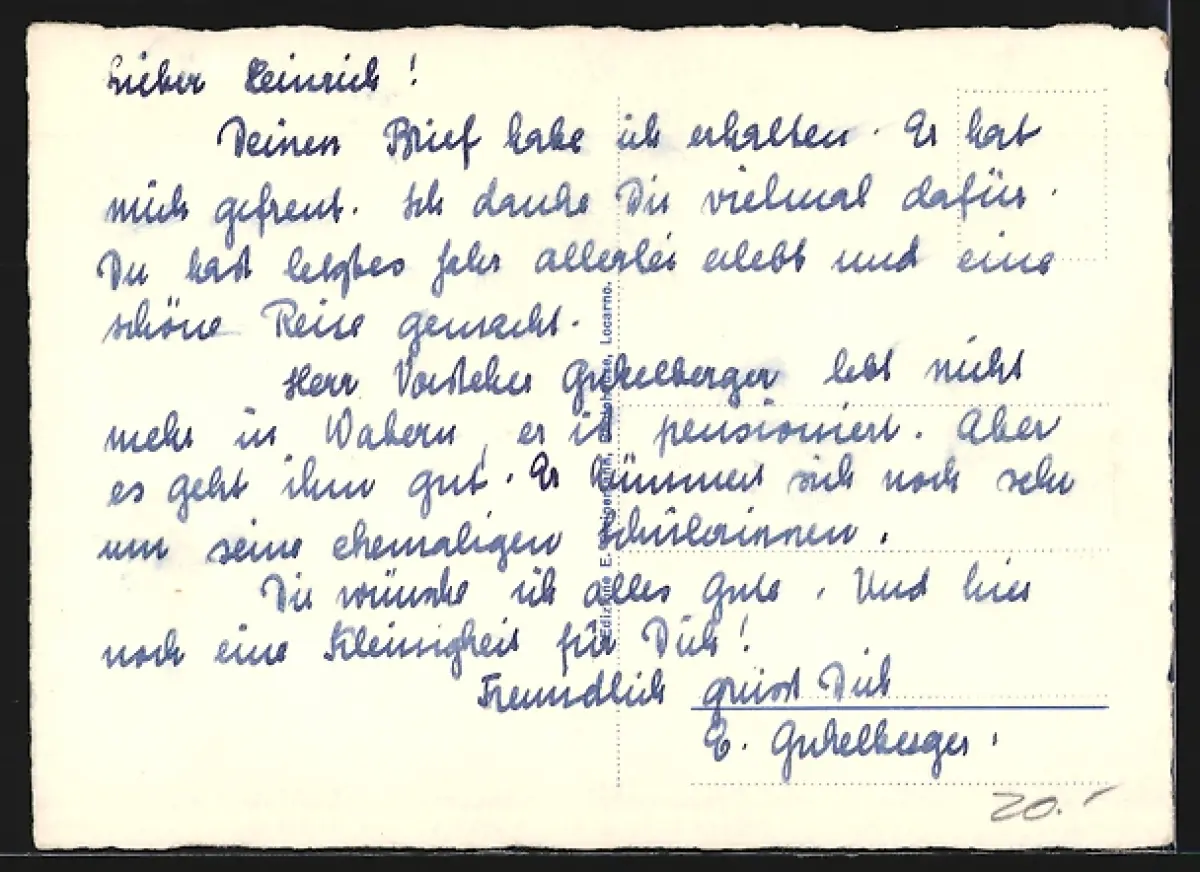 Lieber Heinrich!
Deinen Brief habe ich erhalten. Er hat
mich gefreut. Ich danke Dir vielmal dafür.
Du hast letztes Jahr allerlei erlebt und eine
schöne Reise gemacht.
Herr Vorsteher Gukelberger lebt nicht
mehr in Wabern, er ist pensioniert. Aber
es geht ihm gut. Er kümmert sich noch sehr
um seine ehemaligen Schülerinnen.
Dir wünsche ich alles Gute. Und hier
noch eine Kleinigkeit für Dich!
Freundlich grüsst Dich
E. Gukelberger.
20.-
Edizione E. Locarno.